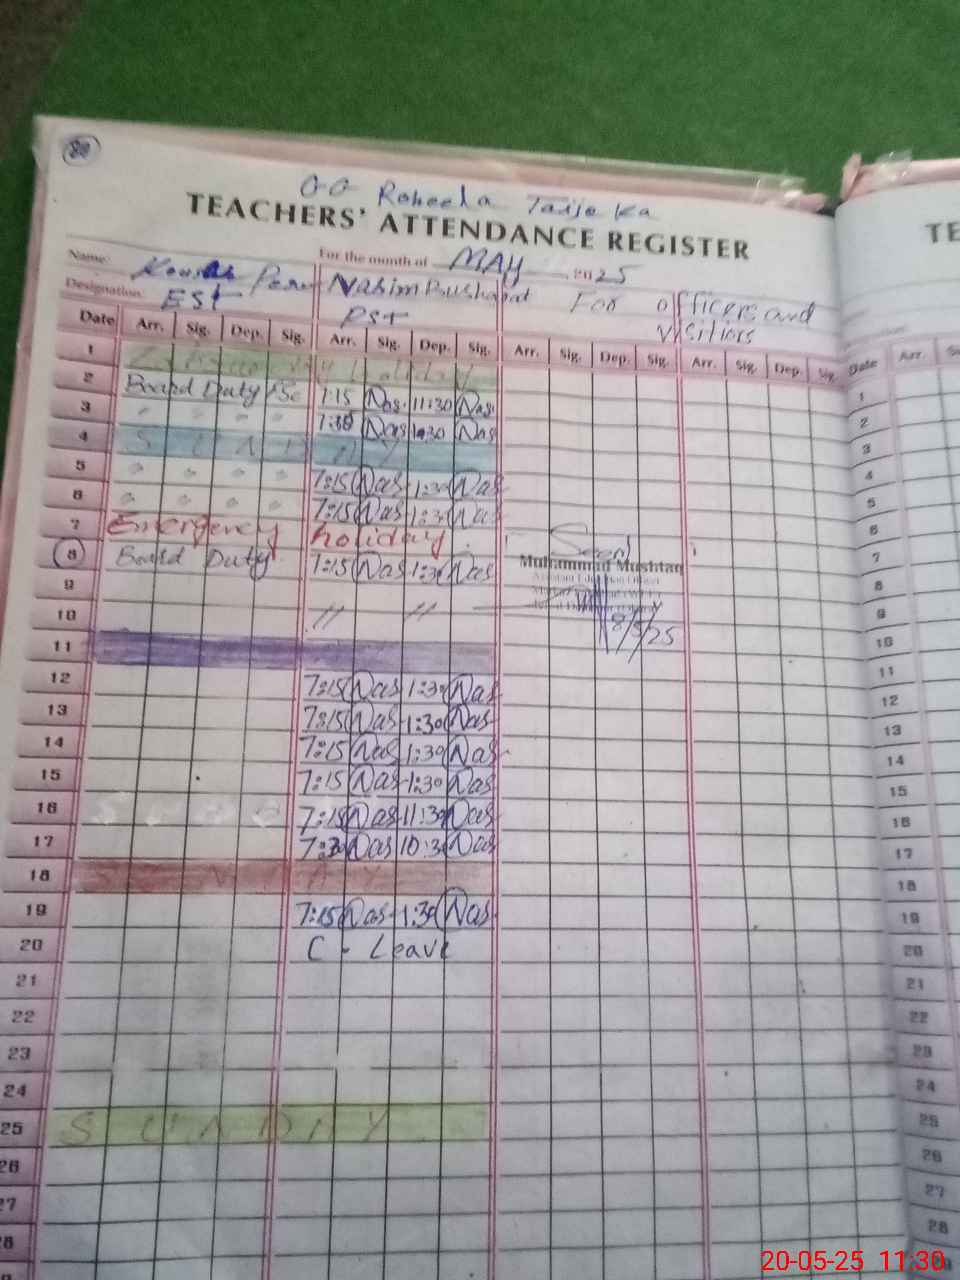 80
TEACHERS' ATTENDANCE REGISTER TE
Name: For the month of MAY 2025
Nasim For officers and
Designation: EST PST Visitiors
Date Arr. Sig. Dep. Sig. Arr. Sig. Dep. Sig. Arr. Sig. Dep. Sig. Arr. Sig. Dep. Sig. Date Arr.
1 1
2 Board Duty 7:15 Nas 11:30 Nas 2
3 " " " " 7:30 Nas Nas 3
4 SUNDAY 4
5 " " " " 7:15 Nas 1:30 Nas 5
6 " " " " 7:15 Nas 1:30 Nas 6
7 Emergency holiday. 7
8 Board Duty 7:15 Nas 1:30 Nas Seen Muhammad Mushtaq 8
9 Assistant Education Officer 9
10 // // 8/5/25 10
11 11
12 7:15 Nas 1:30 Nas 12
13 7:15 Nas 1:30 Nas 13
14 7:15 Nas 1:30 Nas 14
15 7:15 Nas 1:30 Nas 15
16 7:15 Nas 11:30 Nas 16
17 7:30 Nas 10:30 Nas 17
18 SUNDAY 18
19 7:15 Nas 1:30 Nas 19
20 C - Leave 20
21 21
22 22
23 23
24 24
25 SUNDAY 25
26 26
27 27
28 28
20-05-25 11:30